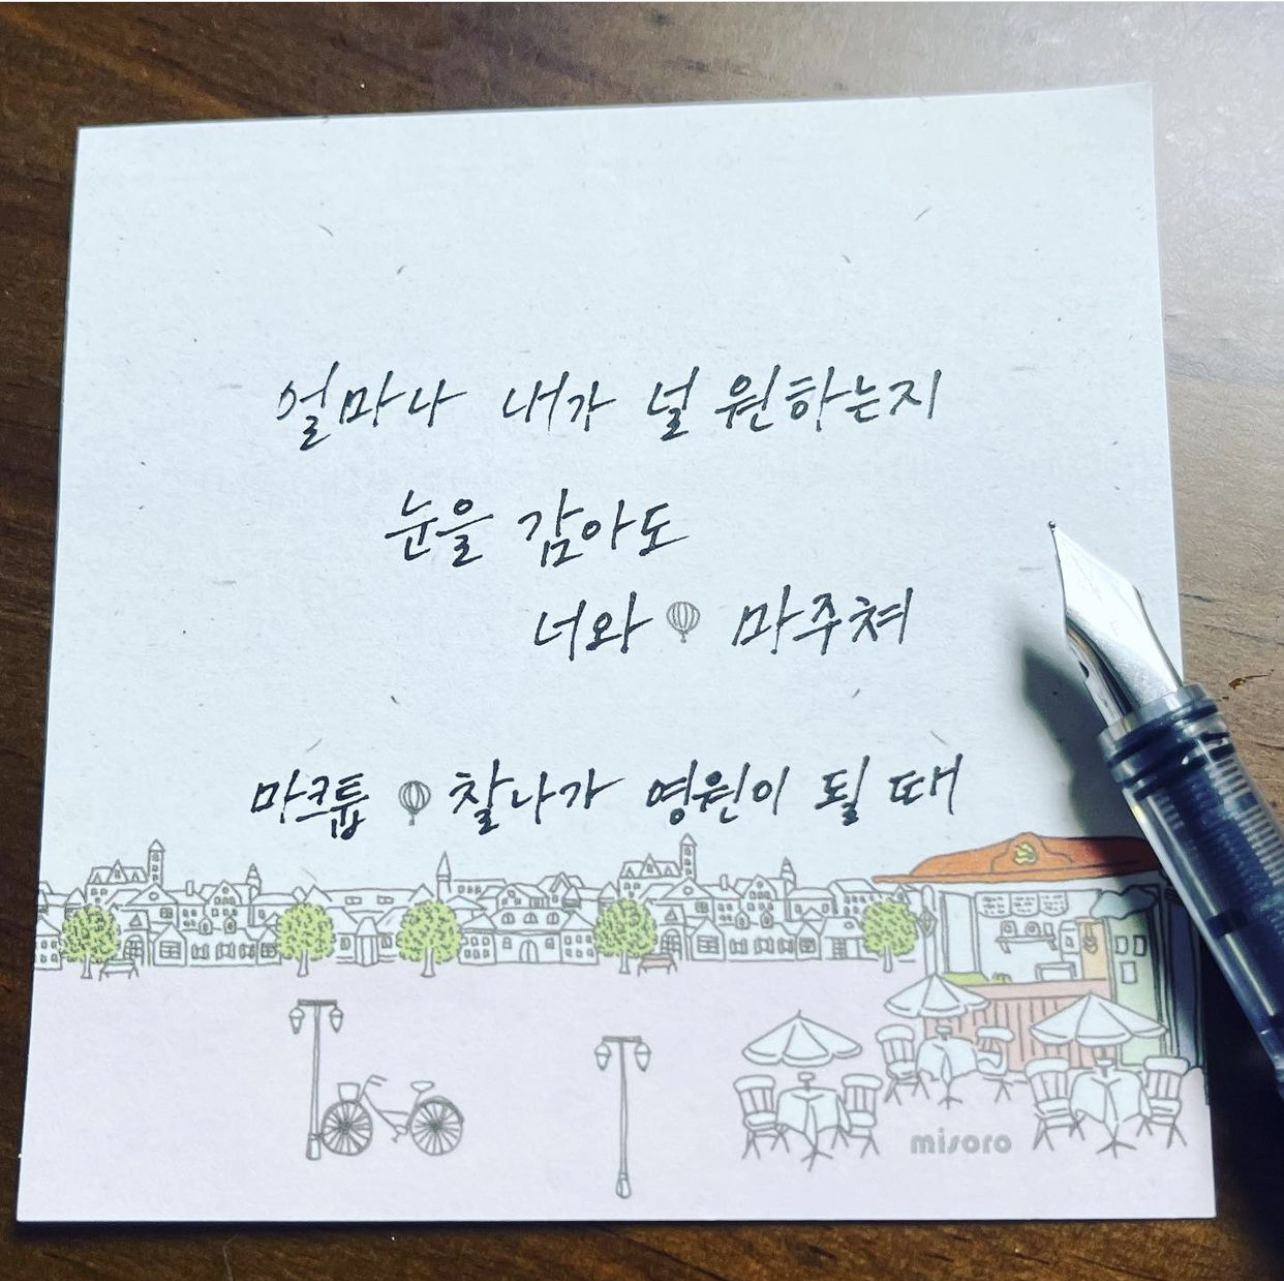 얼마나 내가 널 원하는지
눈을 감아도
너와 마주쳐
마크툽 찰나가 영원이 될 때
misoro